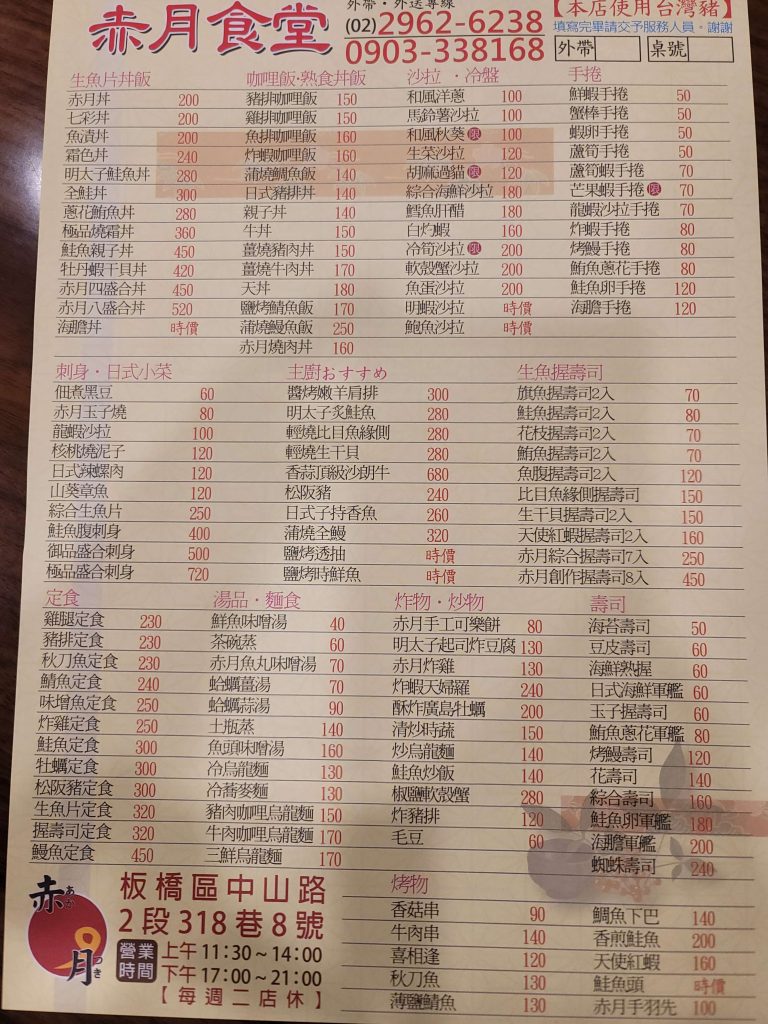 赤月食堂
外帶・外送專線
(02)2962-6238
0903-338168
【本店使用台灣豬】
填寫完畢請交予服務人員。謝謝
外帶 桌號
生魚片丼飯
赤月丼 200
七彩丼 200
魚漬丼 200
霜色丼 240
明太子鮭魚丼 280
全鮭丼 300
蔥花鮪魚丼 280
極品燒霜丼 360
鮭魚親子丼 450
牡丹蝦干貝丼 420
赤月四盛合丼 450
赤月八盛合丼 520
海膽丼 時價
咖哩飯・熟食丼飯
豬排咖哩飯 150
雞排咖哩飯 150
魚排咖哩飯 160
炸蝦咖哩飯 160
蒲燒鯛魚飯 140
日式豬排丼 140
親子丼 140
牛丼 150
薑燒豬肉丼 150
薑燒牛肉丼 170
天丼 180
鹽烤鯖魚飯 170
蒲燒鰻魚飯 250
赤月燒肉丼 160
沙拉・冷盤
和風洋蔥 100
馬鈴薯沙拉 100
和風秋葵 限 100
生菜沙拉 120
胡麻過貓 限 120
綜合海鮮沙拉 180
鱈魚肝醋 180
白灼蝦 160
冷筍沙拉 限 200
軟殼蟹沙拉 200
魚蛋沙拉 200
明蝦沙拉 時價
鮑魚沙拉 時價
手捲
鮮蝦手捲 50
蟹棒手捲 50
蝦卵手捲 50
蘆筍手捲 50
蘆筍蝦手捲 70
芒果蝦手捲 限 70
龍蝦沙拉手捲 70
炸蝦手捲 80
烤鰻手捲 80
鮪魚蔥花手捲 80
鮭魚卵手捲 120
海膽手捲 120
刺身・日式小菜
佃煮黑豆 60
赤月玉子燒 80
龍蝦沙拉 100
核桃燒泥子 120
日式辣螺肉 120
山葵章魚 120
綜合生魚片 250
鮭魚腹刺身 400
御品盛合刺身 500
極品盛合刺身 720
主廚おすすめ
醬烤嫩羊肩排 300
明太子炙鮭魚 280
輕燒比目魚緣側 280
輕燒生干貝 280
香蒜頂級沙朗牛 680
松阪豬 240
日式子持香魚 260
蒲燒全鰻 320
鹽烤透抽 時價
鹽烤時鮮魚 時價
生魚握壽司
旗魚握壽司2入 70
鮭魚握壽司2入 80
花枝握壽司2入 70
鮪魚握壽司2入 70
魚腹握壽司2入 120
比目魚緣側握壽司 150
生干貝握壽司2入 150
天使紅蝦握壽司2入 160
赤月綜合握壽司7入 250
赤月創作握壽司8入 450
定食
雞腿定食 230
豬排定食 230
秋刀魚定食 230
鯖魚定食 240
味增魚定食 250
炸雞定食 250
鮭魚定食 300
牡蠣定食 300
松阪豬定食 300
生魚片定食 320
握壽司定食 320
鰻魚定食 450
湯品・麵食
鮮魚味噌湯 40
茶碗蒸 60
赤月魚丸味噌湯 70
蛤蠣薑湯 70
蛤蠣蒜湯 90
土瓶蒸 140
魚頭味噌湯 160
冷烏龍麵 130
冷蕎麥麵 130
豬肉咖哩烏龍麵 150
牛肉咖哩烏龍麵 170
三鮮烏龍麵 170
炸物・炒物
赤月手工可樂餅 80
明太子起司炸豆腐 130
赤月炸雞 130
炸蝦天婦羅 240
酥炸廣島牡蠣 200
清炒時蔬 150
炒烏龍麵 140
鮭魚炒飯 140
椒鹽軟殼蟹 280
炸豬排 120
毛豆 60
壽司
海苔壽司 50
豆皮壽司 60
海鮮熟握 60
日式海鮮軍艦 60
玉子握壽司 60
鮪魚蔥花軍艦 80
烤鰻壽司 120
花壽司 140
綜合壽司 160
鮭魚卵軍艦 180
海膽軍艦 200
蜘蛛壽司 240
烤物
香菇串 90
牛肉串 140
喜相逢 120
秋刀魚 130
薄鹽鯖魚 130
鯛魚下巴 140
香煎鮭魚 200
天使紅蝦 160
鮭魚頭 時價
赤月手羽先 100
赤 あか
月 つき
板橋區中山路
2段318巷8號
營業時間
上午11:30~14:00
下午17:00~21:00
【每週二店休】